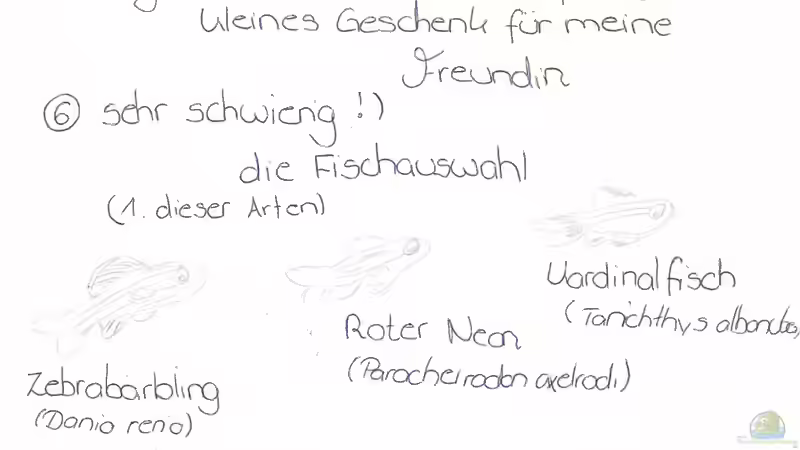 kleines Geschenk für meine
Freundin
⑥ sehr schwierig !)
die Fischauswahl
(1. dieser Arten)
Kardinalfisch
(Tanichthys albonubes,
Roter Neon
(Paracheirodon axelrodi)
Zebrabärbling
(Danio rerio)